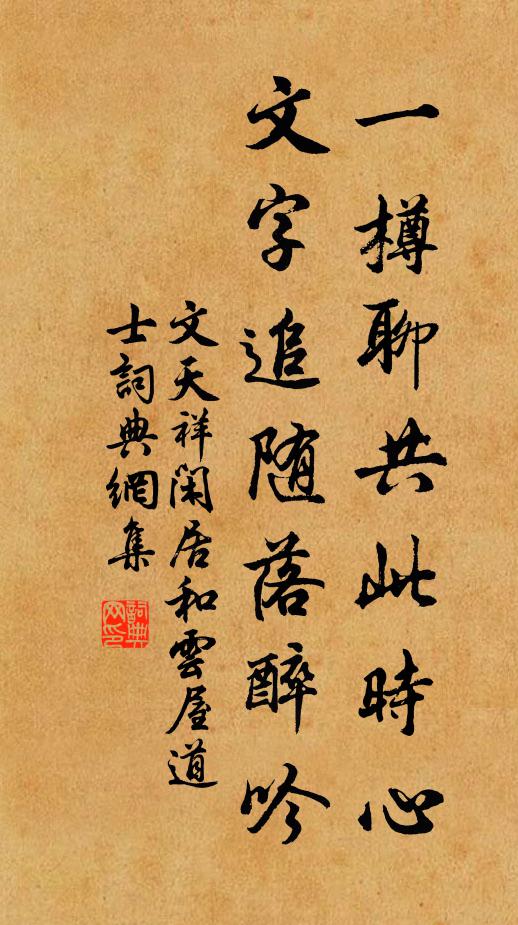 一樽聊共此時心
文字追随落醉吟
文天祥閑居和雲屋道
士詞典網集
詞典
网印